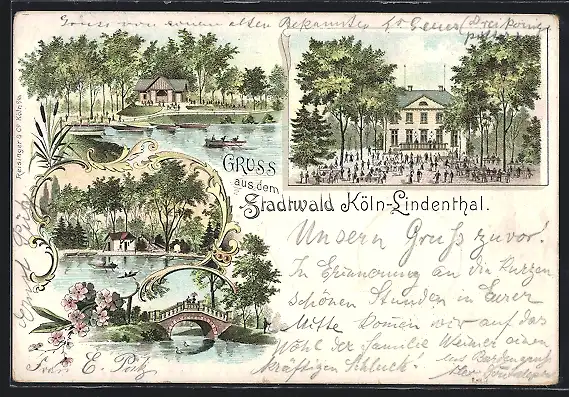 Gruss von einem alten Bekannten
GRUSS
aus dem
Stadtwald Köln-Lindenthal.
Reisinger & Co Köln
Unsern Gruß zuvor!
In Erinnerung an die kurzen
schönen Stunden in Eurer
Mitte kommen wir auf das
Wohl der Familie Weimer einen
kräftigen Schluck!
Frau E. Pütz